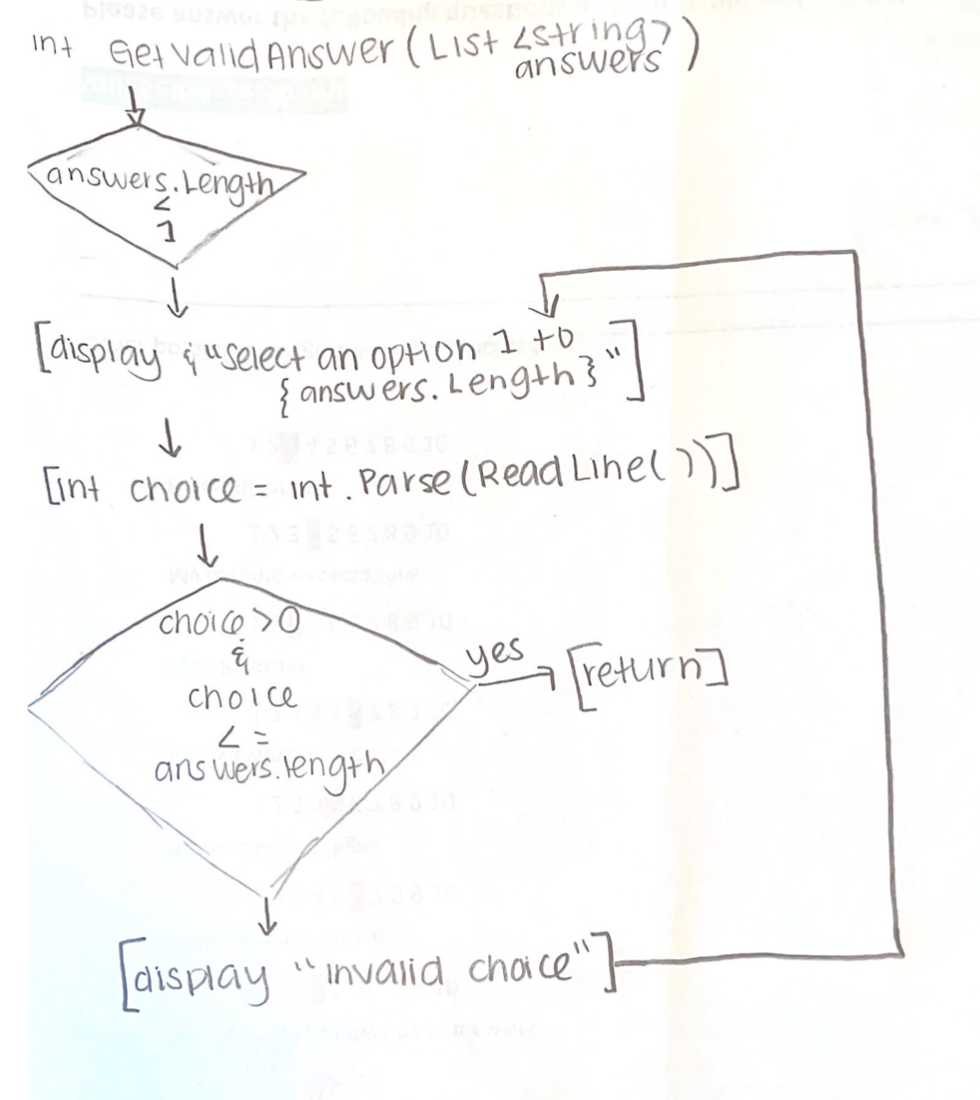 int GetValidAnswer (List <string>
answers )
answers.Length
<
1
[display & "select an option 1 to
{answers.Length}"]
[int choice = int.Parse(ReadLine())]
choice >0
&
choice
<=
answers.length
yes
[return]
[display "invalid choice"]